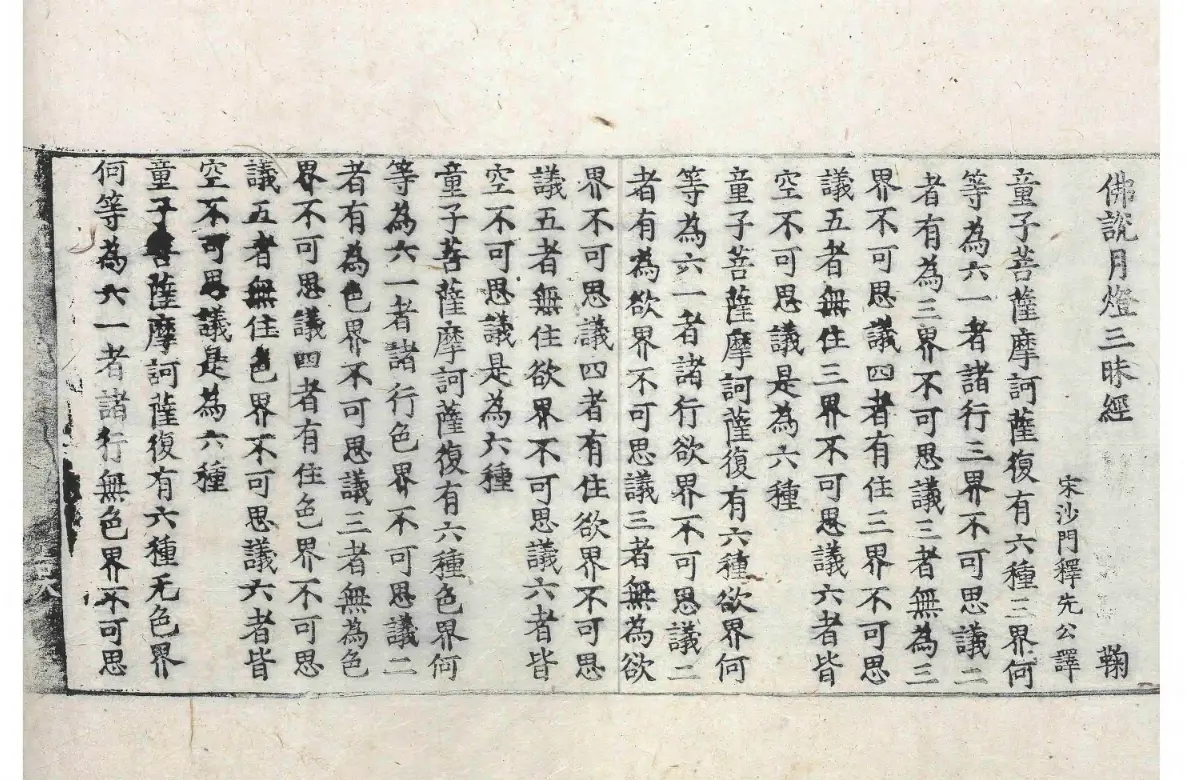 佛説月燈三昧經 鞠
宋沙門釋先公譯
童子菩薩摩訶薩復有六種三界何
等為六一者諸行三界不可思議二
者有為三界不可思議三者無為三
界不可思議四者有住三界不可思
議五者無住三界不可思議六者皆
空不可思議是為六種
童子菩薩摩訶薩復有六種欲界何
等為六一者諸行欲界不可思議二
者有為欲界不可思議三者無為欲
界不可思議四者有住欲界不可思
議五者無住欲界不可思議六者皆
空不可思議是為六種
童子菩薩摩訶薩復有六種色界何
等為六一者諸行色界不可思議二
者有為色界不可思議三者無為色
界不可思議四者有住色界不可思
議五者無住色界不可思議六者皆
空不可思議是為六種
童子菩薩摩訶薩復有六種无色界
何等為六一者諸行無色界不可思